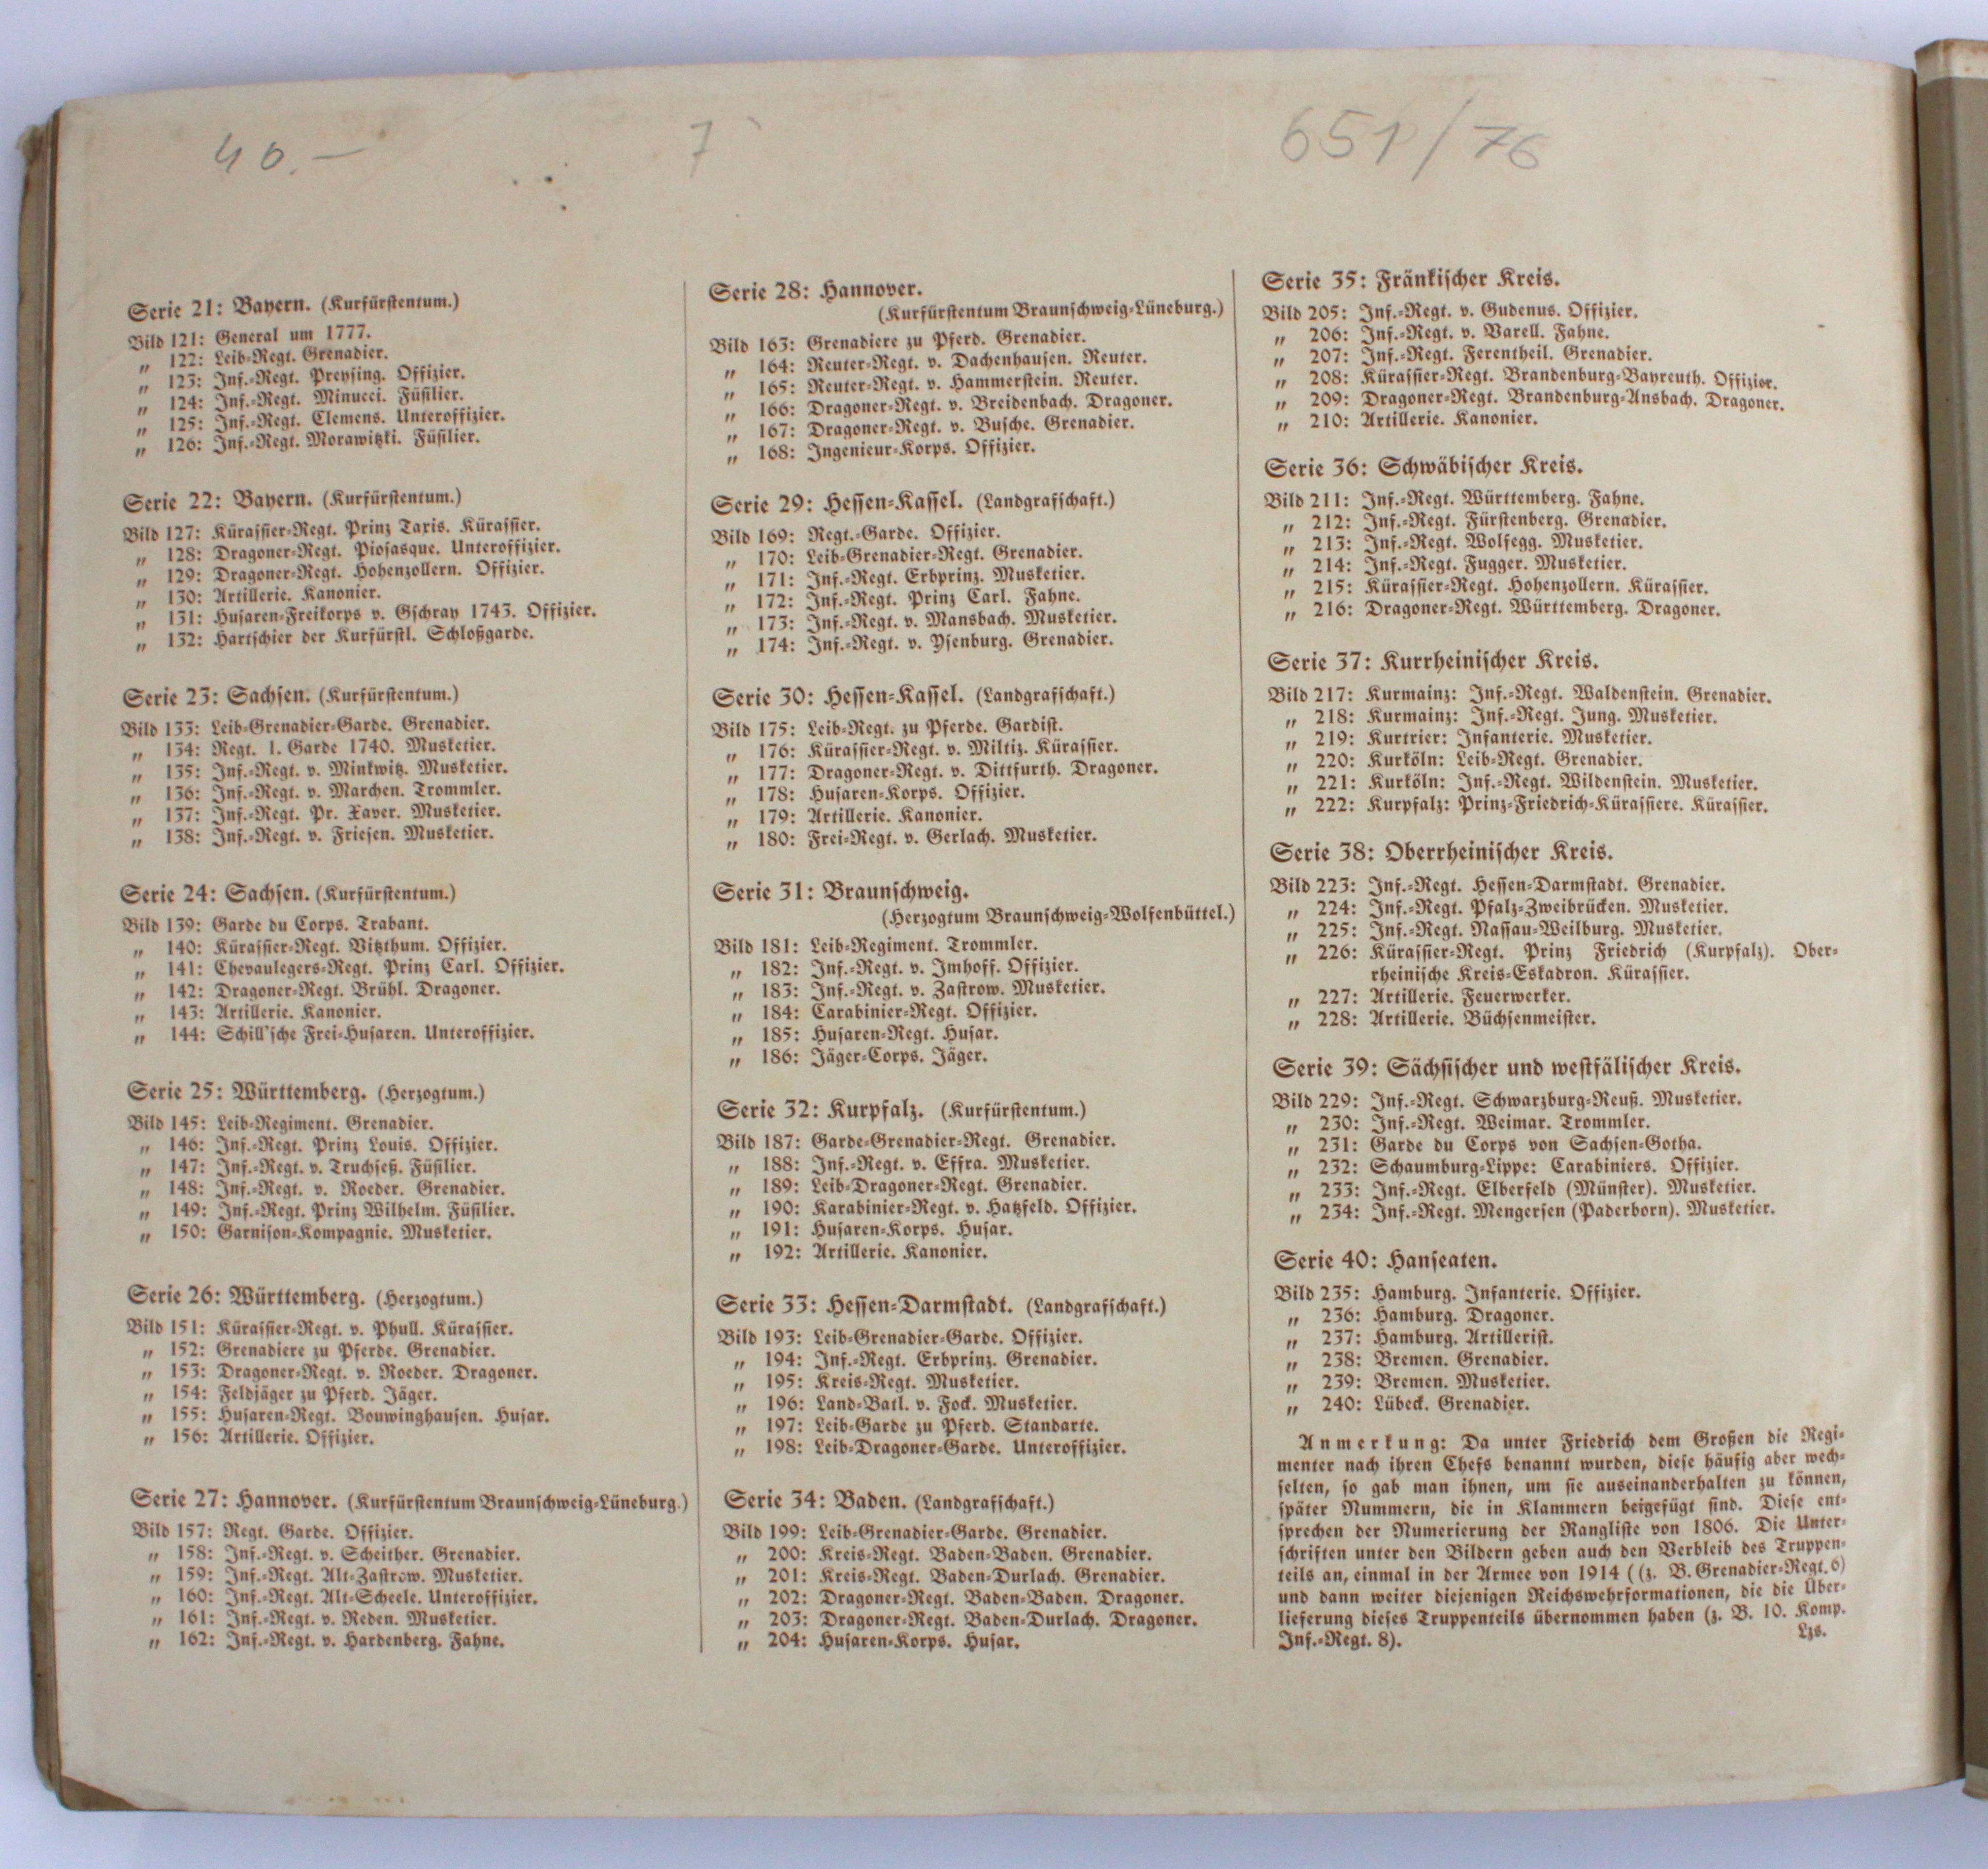 40.—
7
651/76
Serie 21: Bayern. (Kurfürstentum.)
Bild 121: General um 1777.
„ 122: Leib-Regt. Grenadier.
„ 123: Inf.-Regt. Preysing. Offizier.
„ 124: Inf.-Regt. Minucci. Füsilier.
„ 125: Inf.-Regt. Clemens. Unteroffizier.
„ 126: Inf.-Regt. Morawitzki. Füsilier.
Serie 22: Bayern. (Kurfürstentum.)
Bild 127: Kürassier-Regt. Prinz Taxis. Kürassier.
„ 128: Dragoner-Regt. Piosasque. Unteroffizier.
„ 129: Dragoner-Regt. Hohenzollern. Offizier.
„ 130: Artillerie. Kanonier.
„ 131: Husaren-Freikorps v. Gschray 1743. Offizier.
„ 132: Hartschier der Kurfürstl. Schloßgarde.
Serie 23: Sachsen. (Kurfürstentum.)
Bild 133: Leib-Grenadier-Garde. Grenadier.
„ 134: Regt. 1. Garde 1740. Musketier.
„ 135: Inf.-Regt. v. Minkwitz. Musketier.
„ 136: Inf.-Regt. v. Marchen. Trommler.
„ 137: Inf.-Regt. Pr. Xaver. Musketier.
„ 138: Inf.-Regt. v. Friesen. Musketier.
Serie 24: Sachsen. (Kurfürstentum.)
Bild 139: Garde du Corps. Trabant.
„ 140: Kürassier-Regt. Vitzthum. Offizier.
„ 141: Chevaulegers-Regt. Prinz Carl. Offizier.
„ 142: Dragoner-Regt. Brühl. Dragoner.
„ 143: Artillerie. Kanonier.
„ 144: Schill'sche Frei-Husaren. Unteroffizier.
Serie 25: Württemberg. (Herzogtum.)
Bild 145: Leib-Regiment. Grenadier.
„ 146: Inf.-Regt. Prinz Louis. Offizier.
„ 147: Inf.-Regt. v. Truchseß. Füsilier.
„ 148: Inf.-Regt. v. Roeder. Grenadier.
„ 149: Inf.-Regt. Prinz Wilhelm. Füsilier.
„ 150: Garnison-Kompagnie. Musketier.
Serie 26: Württemberg. (Herzogtum.)
Bild 151: Kürassier-Regt. v. Phull. Kürassier.
„ 152: Grenadiere zu Pferde. Grenadier.
„ 153: Dragoner-Regt. v. Roeder. Dragoner.
„ 154: Feldjäger zu Pferd. Jäger.
„ 155: Husaren-Regt. Bouwinghausen. Husar.
„ 156: Artillerie. Offizier.
Serie 27: Hannover. (Kurfürstentum Braunschweig-Lüneburg.)
Bild 157: Regt. Garde. Offizier.
„ 158: Inf.-Regt. v. Scheither. Grenadier.
„ 159: Inf.-Regt. Alt-Zastrow. Musketier.
„ 160: Inf.-Regt. Alt-Scheele. Unteroffizier.
„ 161: Inf.-Regt. v. Reden. Musketier.
„ 162: Inf.-Regt. v. Hardenberg. Fahne.
Serie 28: Hannover.
(Kurfürstentum Braunschweig-Lüneburg.)
Bild 163: Grenadiere zu Pferd. Grenadier.
„ 164: Reuter-Regt. v. Dachenhausen. Reuter.
„ 165: Reuter-Regt. v. Hammerstein. Reuter.
„ 166: Dragoner-Regt. v. Breidenbach. Dragoner.
„ 167: Dragoner-Regt. v. Busche. Grenadier.
„ 168: Ingenieur-Korps. Offizier.
Serie 29: Hessen-Kassel. (Landgrafschaft.)
Bild 169: Regt.-Garde. Offizier.
„ 170: Leib-Grenadier-Regt. Grenadier.
„ 171: Inf.-Regt. Erbprinz. Musketier.
„ 172: Inf.-Regt. Prinz Carl. Fahne.
„ 173: Inf.-Regt. v. Mansbach. Musketier.
„ 174: Inf.-Regt. v. Ysenburg. Grenadier.
Serie 30: Hessen-Kassel. (Landgrafschaft.)
Bild 175: Leib-Regt. zu Pferde. Gardist.
„ 176: Kürassier-Regt. v. Miltiz. Kürassier.
„ 177: Dragoner-Regt. v. Dittfurth. Dragoner.
„ 178: Husaren-Korps. Offizier.
„ 179: Artillerie. Kanonier.
„ 180: Frei-Regt. v. Gerlach. Musketier.
Serie 31: Braunschweig.
(Herzogtum Braunschweig-Wolfenbüttel.)
Bild 181: Leib-Regiment. Trommler.
„ 182: Inf.-Regt. v. Imhoff. Offizier.
„ 183: Inf.-Regt. v. Zastrow. Musketier.
„ 184: Carabinier-Regt. Offizier.
„ 185: Husaren-Regt. Husar.
„ 186: Jäger-Corps. Jäger.
Serie 32: Kurpfalz. (Kurfürstentum.)
Bild 187: Garde-Grenadier-Regt. Grenadier.
„ 188: Inf.-Regt. v. Effra. Musketier.
„ 189: Leib-Dragoner-Regt. Grenadier.
„ 190: Karabinier-Regt. v. Hatzfeld. Offizier.
„ 191: Husaren-Korps. Husar.
„ 192: Artillerie. Kanonier.
Serie 33: Hessen-Darmstadt. (Landgrafschaft.)
Bild 193: Leib-Grenadier-Garde. Offizier.
„ 194: Inf.-Regt. Erbprinz. Grenadier.
„ 195: Kreis-Regt. Musketier.
„ 196: Land-Batl. v. Fock. Musketier.
„ 197: Leib-Garde zu Pferd. Standarte.
„ 198: Leib-Dragoner-Garde. Unteroffizier.
Serie 34: Baden. (Landgrafschaft.)
Bild 199: Leib-Grenadier-Garde. Grenadier.
„ 200: Kreis-Regt. Baden-Baden. Grenadier.
„ 201: Kreis-Regt. Baden-Durlach. Grenadier.
„ 202: Dragoner-Regt. Baden-Baden. Dragoner.
„ 203: Dragoner-Regt. Baden-Durlach. Dragoner.
„ 204: Husaren-Korps. Husar.
Serie 35: Fränkischer Kreis.
Bild 205: Inf.-Regt. v. Gudenus. Offizier.
„ 206: Inf.-Regt. v. Varell. Fahne.
„ 207: Inf.-Regt. Ferentheil. Grenadier.
„ 208: Kürassier-Regt. Brandenburg-Bayreuth. Offizier.
„ 209: Dragoner-Regt. Brandenburg-Ansbach. Dragoner.
„ 210: Artillerie. Kanonier.
Serie 36: Schwäbischer Kreis.
Bild 211: Inf.-Regt. Württemberg. Fahne.
„ 212: Inf.-Regt. Fürstenberg. Grenadier.
„ 213: Inf.-Regt. Wolfegg. Musketier.
„ 214: Inf.-Regt. Fugger. Musketier.
„ 215: Kürassier-Regt. Hohenzollern. Kürassier.
„ 216: Dragoner-Regt. Württemberg. Dragoner.
Serie 37: Kurrheinischer Kreis.
Bild 217: Kurmainz: Inf.-Regt. Waldenstein. Grenadier.
„ 218: Kurmainz: Inf.-Regt. Jung. Musketier.
„ 219: Kurtrier: Infanterie. Musketier.
„ 220: Kurköln: Leib-Regt. Grenadier.
„ 221: Kurköln: Inf.-Regt. Wildenstein. Musketier.
„ 222: Kurpfalz: Prinz-Friedrich-Kürassiere. Kürassier.
Serie 38: Oberrheinischer Kreis.
Bild 223: Inf.-Regt. Hessen-Darmstadt. Grenadier.
„ 224: Inf.-Regt. Pfalz-Zweibrücken. Musketier.
„ 225: Inf.-Regt. Nassau-Weilburg. Musketier.
„ 226: Kürassier-Regt. Prinz Friedrich (Kurpfalz). Ober-
rheinische Kreis-Eskadron. Kürassier.
„ 227: Artillerie. Feuerwerker.
„ 228: Artillerie. Büchsenmeister.
Serie 39: Sächsischer und westfälischer Kreis.
Bild 229: Inf.-Regt. Schwarzburg-Reuß. Musketier.
„ 230: Inf.-Regt. Weimar. Trommler.
„ 231: Garde du Corps von Sachsen-Gotha.
„ 232: Schaumburg-Lippe: Carabiniers. Offizier.
„ 233: Inf.-Regt. Elberfeld (Münster). Musketier.
„ 234: Inf.-Regt. Mengersen (Paderborn). Musketier.
Serie 40: Hanseaten.
Bild 235: Hamburg. Infanterie. Offizier.
„ 236: Hamburg. Dragoner.
„ 237: Hamburg. Artillerist.
„ 238: Bremen. Grenadier.
„ 239: Bremen. Musketier.
„ 240: Lübeck. Grenadier.
Anmerkung: Da unter Friedrich dem Großen die Regi-
menter nach ihren Chefs benannt wurden, diese häufig aber wech-
selten, so gab man ihnen, um sie auseinanderhalten zu können,
später Nummern, die in Klammern beigefügt sind. Diese ent-
sprechen der Numerierung der Rangliste von 1806. Die Unter-
schriften unter den Bildern geben auch den Verbleib des Truppen-
teils an, einmal in der Armee von 1914 ((z. B. Grenadier-Regt. 6)
und dann weiter diejenigen Reichswehrformationen, die die Über-
lieferung dieses Truppenteils übernommen haben (z. B. 10. Komp.
Inf.-Regt. 8).
Lzs.